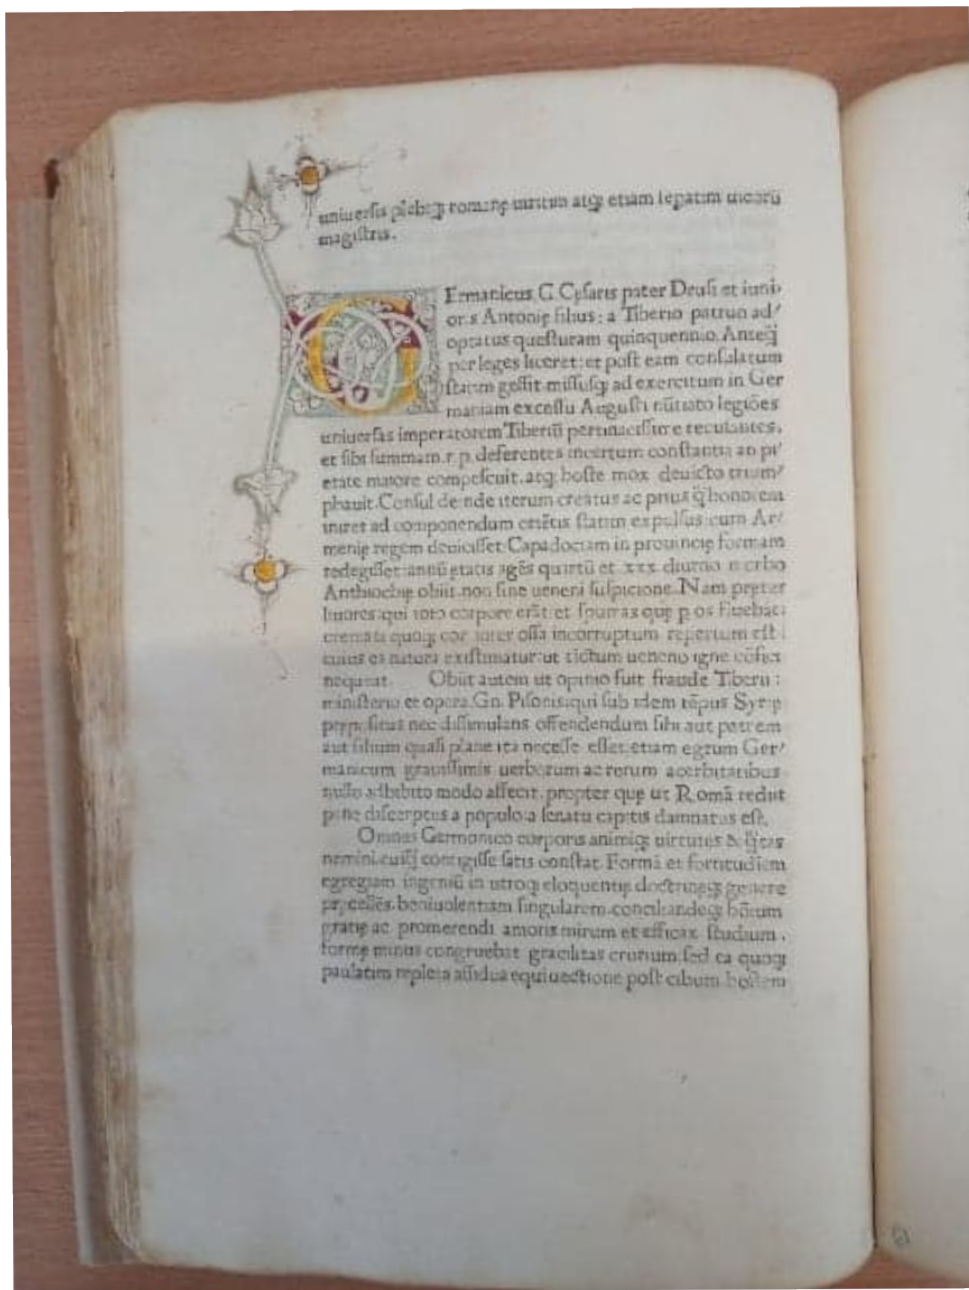 uniuersis plebiqꝫ romanę uiritim atqꝫ etiam legatim uicorū
magistris.
GErmanicus. G. Cęsaris pater Drusi et iuni,
oris Antonię filius: a Tiberio patruo ad/
optatus questuram quinquennio. Anteq̄
per leges liceret: et post eam consulatum
statim gessit. missusqꝫ ad exercitum in Ger
maniam excessu Augusti nūtiato legiōes
uniuersas imperatorem Tiberiū pertinacissime recusantes.
et sibi summam. r. p. deferentes incertum constantia an pi/
etate maiore compescuit. atqꝫ hoste mox deuicto trium/
phauit. Consul deinde iterum creatus ac priusq̄ honorem
iniret ad componendum statim expulsus: cum Ar/
menię regem deuicisset. Capadociam in prouincię formam
redegisset: annū ętatis agēs quartū et xxx. diurno morbo
Anthiochię obiit. non sine ueneni suspicione. Nam pręter
liuores: qui toto corpore erāt: et spumas quę p os fluebāt:
cremati quoqꝫ cor inter ossa incorruptum repertum est:
cuius ea natura existimatur: ut tictum ueneno igne cōfici
nequeat. Obiit autem ut opinio fuit fraude Tiberii:
ministerio et opera. Gn. Pisonis: qui sub idem tēpus Syrię
prępositus nec dissimulans offendendum sibi aut patrem
aut filium quasi plane ita necesse esset. etiam egrum Ger/
manicum grauissimis uerborum ac rerum acerbitatibus
nullo adhibito modo affecit. propter quę ut Romā rediit
pęne discerptus a populo: a senatu capitis damnatus est.
Omnes Germanico corporis animiqꝫ uirtutes &
nemini cuiq̄ contigisse satis constat. Formā et fortitudinem
egregiam ingeniū in utroqꝫ eloquentię doctrineqꝫ genere
pręcellēs. beniuolentiam singularem. conciliandeqꝫ hōinum
gratię ac promerendi amoris mirum et efficax studium.
formę minus congruebat gracilitas crurium: sed ea quoqꝫ
paulatim repleta assidua equi uectione post cibum. hostem
61